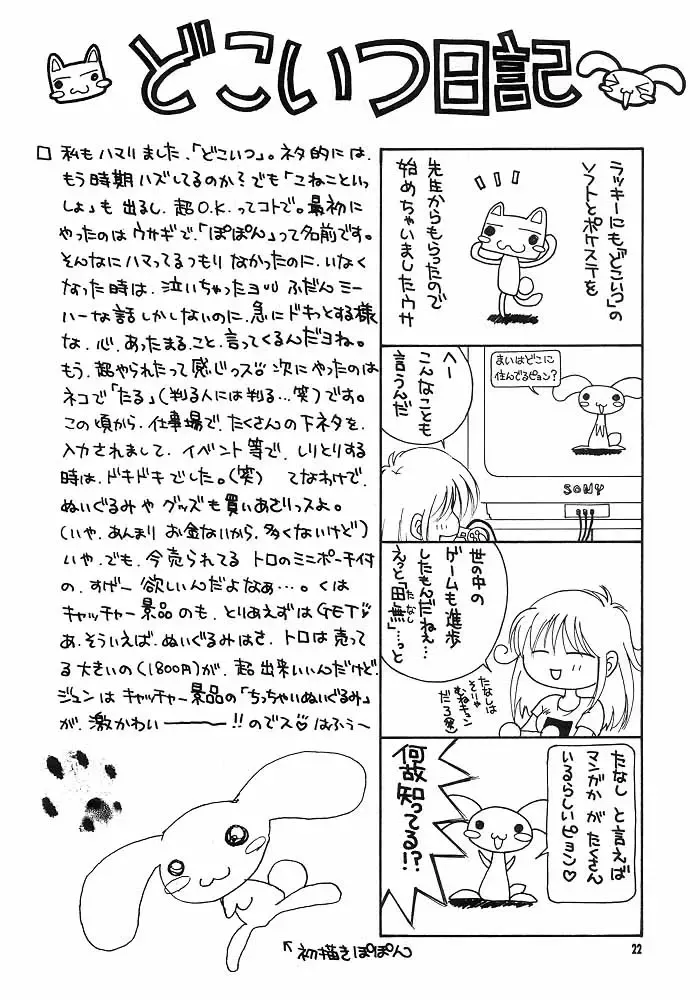 どこいつ日記
□ 私もハマりました、「どこいつ」。ネタ的には、
もう時期ハズしてるのか?でも「こねこといっ
しょ」も出るし、超O.K.ってコトで。最初に
やったのはウサギで、「ぽぽん」って名前です。
そんなにハマってるつもりなかったのに、いなく
なった時は、泣いちゃったヨ
ふだんミー
ハーな話しかしないのに、急にドキっとする様
な、心、あったまること、言ってくるんだヨね。
もう、超やられたって感じっス♡次にやったのは
ネコで「たる」(判る人には判る…笑)です。
この頃から、仕事場で、たくさんの下ネタを、
入力されまして、イベント等で、しりとりする
時は、ドキドキでした。(笑) てなわけで、
ぬいぐるみやグッズも買いあさりっスよ。
(いや、あんまりお金ないから、多くないけど)
いや、でも、今売られてるトロのミニポーチ付
の、すげー欲しいんだよなぁ…。くは
キャッチャー景品のも、とりあえずはGET♡
あ、そういえば、ぬいぐるみはさ、トロは売っ
てる大きいの(1800円)が、超出来いいんだけど、
ジュンはキャッチャー景品の「ちっちゃいぬいぐるみ」
が、激かわいー!!のでス♡はふぅ〜
ラッキーにも「どこいつ」の
ソフトとポケステを
先生からもらったので
始めちゃいましたウサ
まいはどこに
住んでるピョン?
へー
こんなことも
言うんだ
SONY
世の中の
ゲームも進歩
したもんだねぇ…
えっと「田無」…っと
たなし
たなしは
そりゃ
むねキュン
だろ(笑)
たなし と言えば
マンガか が たくさん
いるらしいピョン♡
何故知ってる!?
↖初描きぽぽん
22